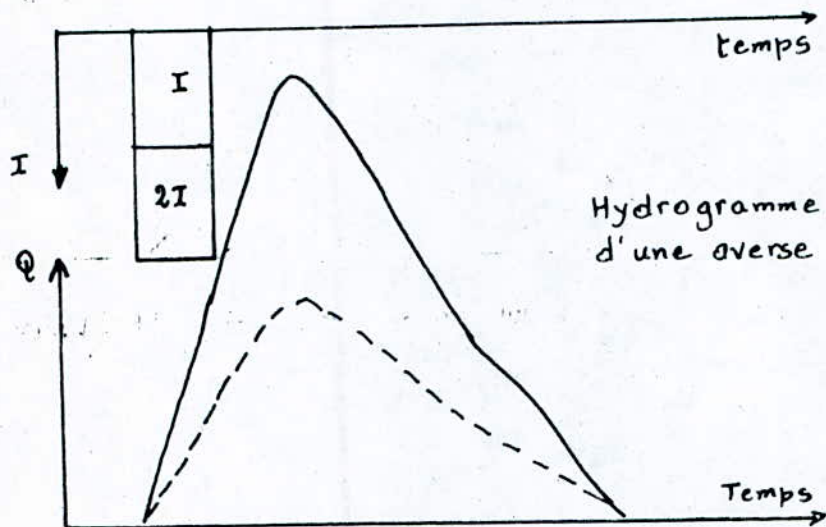 temps
I
I
2I
Hydrogramme
d'une averse
Q
Temps